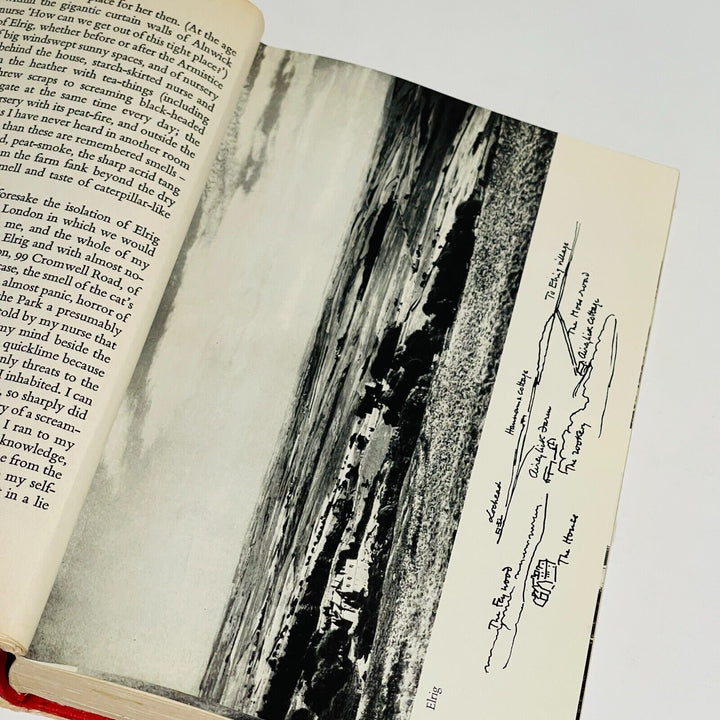 place for her then. (At the age
the gigantic curtain walls of Alnwick
nurse 'How can we get out of this tight place?')
of Elrig, whether before or after the Armistice
big windswept sunny spaces, and of nursery
behind the house, starch-skirted nurse and
the heather with tea-things (including
hrew scraps to screaming black-headed
gate at the same time every day; the
rsery with its peat-fire, and outside the
s I have never heard in another room
than these are remembered smells –
d, peat-smoke, the sharp acrid tang
m the farm fank beyond the dry
mell and taste of caterpillar-like
oresake the isolation of Elrig
London in which we would
me, and the whole of my
Elrig and with almost no-
on, 99 Cromwell Road, of
case, the smell of the cat's
almost panic, horror of
the Park a presumably
told by my nurse that
my mind beside the
quicklime because
only threats to the
I inhabited. I can
s, so sharply did
ry of a scream-
I ran to my
knowledge,
e from the
my self-
t in a lie
To Elrig village
The Moss road
Airylick Cottage
Hannan's Cottage
Airylick Farm
The rookery
Lochead
The Fey wood
The House
Elrig